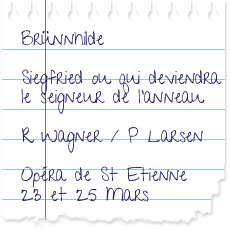 Brünnhilde
Siegfried ou qui deviendra
le seigneur de l'anneau
R Wagner / P Larsen
Opéra de St Etienne
23 et 25 Mars